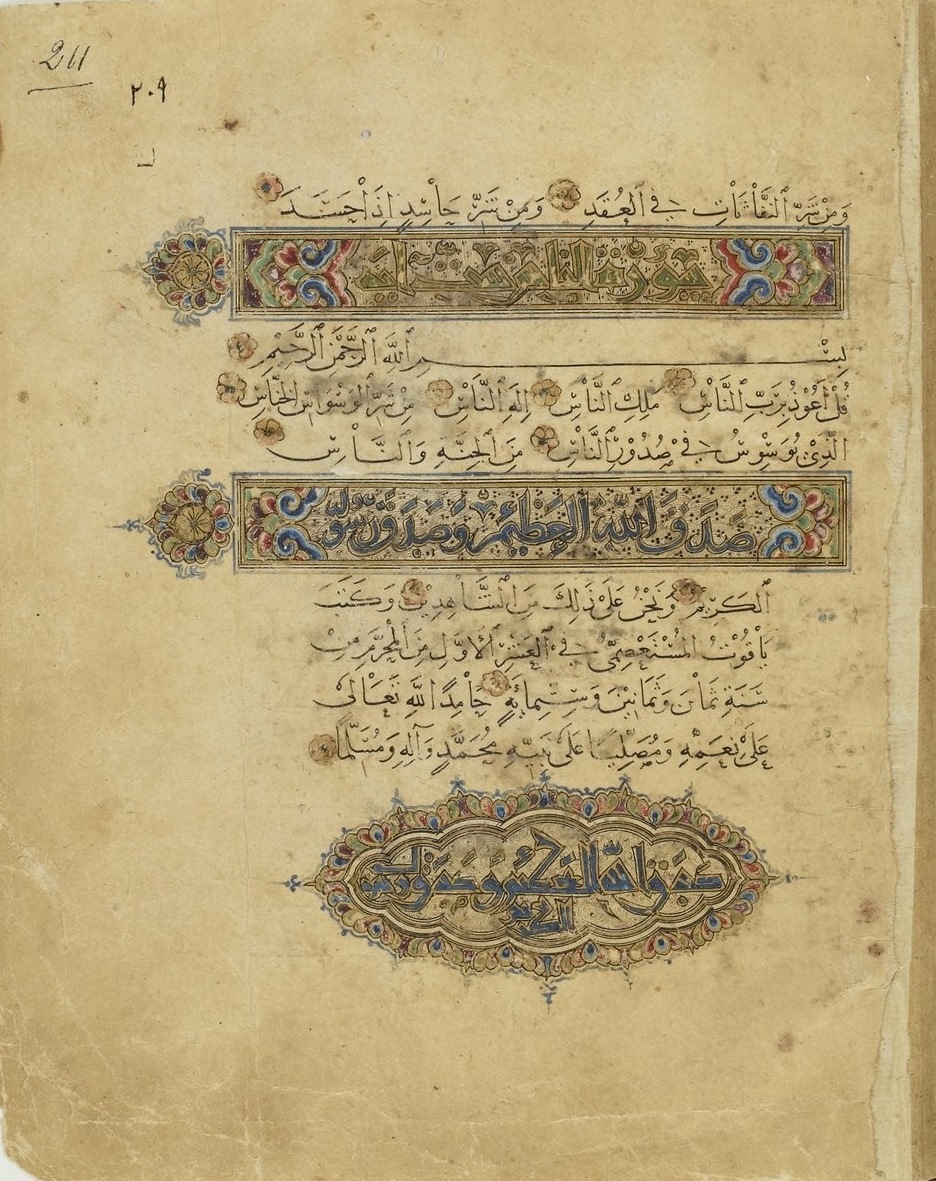 211
٢٠٩
وَمِنْ شَرِّ ٱلنَّفَّاثَاتِ فِي ٱلْعُقَدِ وَمِنْ شَرِّ حَاسِدٍ إِذَا حَسَدَ
سورة الناس ست آيات
بِسْمِ ٱللَّهِ ٱلرَّحْمَٰنِ ٱلرَّحِيمِ
قُلْ أَعُوذُ بِرَبِّ ٱلنَّاسِ مَلِكِ ٱلنَّاسِ إِلَهِ ٱلنَّاسِ مِنْ شَرِّ ٱلْوَسْوَاسِ ٱلْخَنَّاسِ
ٱلَّذِي يُوَسْوِسُ فِي صُدُورِ ٱلنَّاسِ مِنَ ٱلْجِنَّةِ وَٱلنَّاسِ
صَدَقَ ٱللَّهُ ٱلْعَظِيمُ وَصَدَقَ رَسُولُهُ
ٱلْكَرِيمُ وَنَحْنُ عَلَى ذَلِكَ مِنَ ٱلشَّاهِدِينَ وَكَتَبَ
يَاقُوتُ ٱلْمُسْتَعْصِمِيُّ فِي ٱلْعَشْرِ ٱلْأَوَّلِ مِنَ ٱلْمُحَرَّمِ مِنْ
سَنَةِ ثَمَانٍ وَثَمَانِينَ وَسِتِّمِائَةٍ حَامِدًا لِلَّهِ تَعَالَى
عَلَى نِعَمِهِ وَمُصَلِّيًا عَلَى نَبِيِّهِ مُحَمَّدٍ وَآلِهِ وَمُسَلِّمًا
صدق الله العظيم وصدق رسوله
الكريم